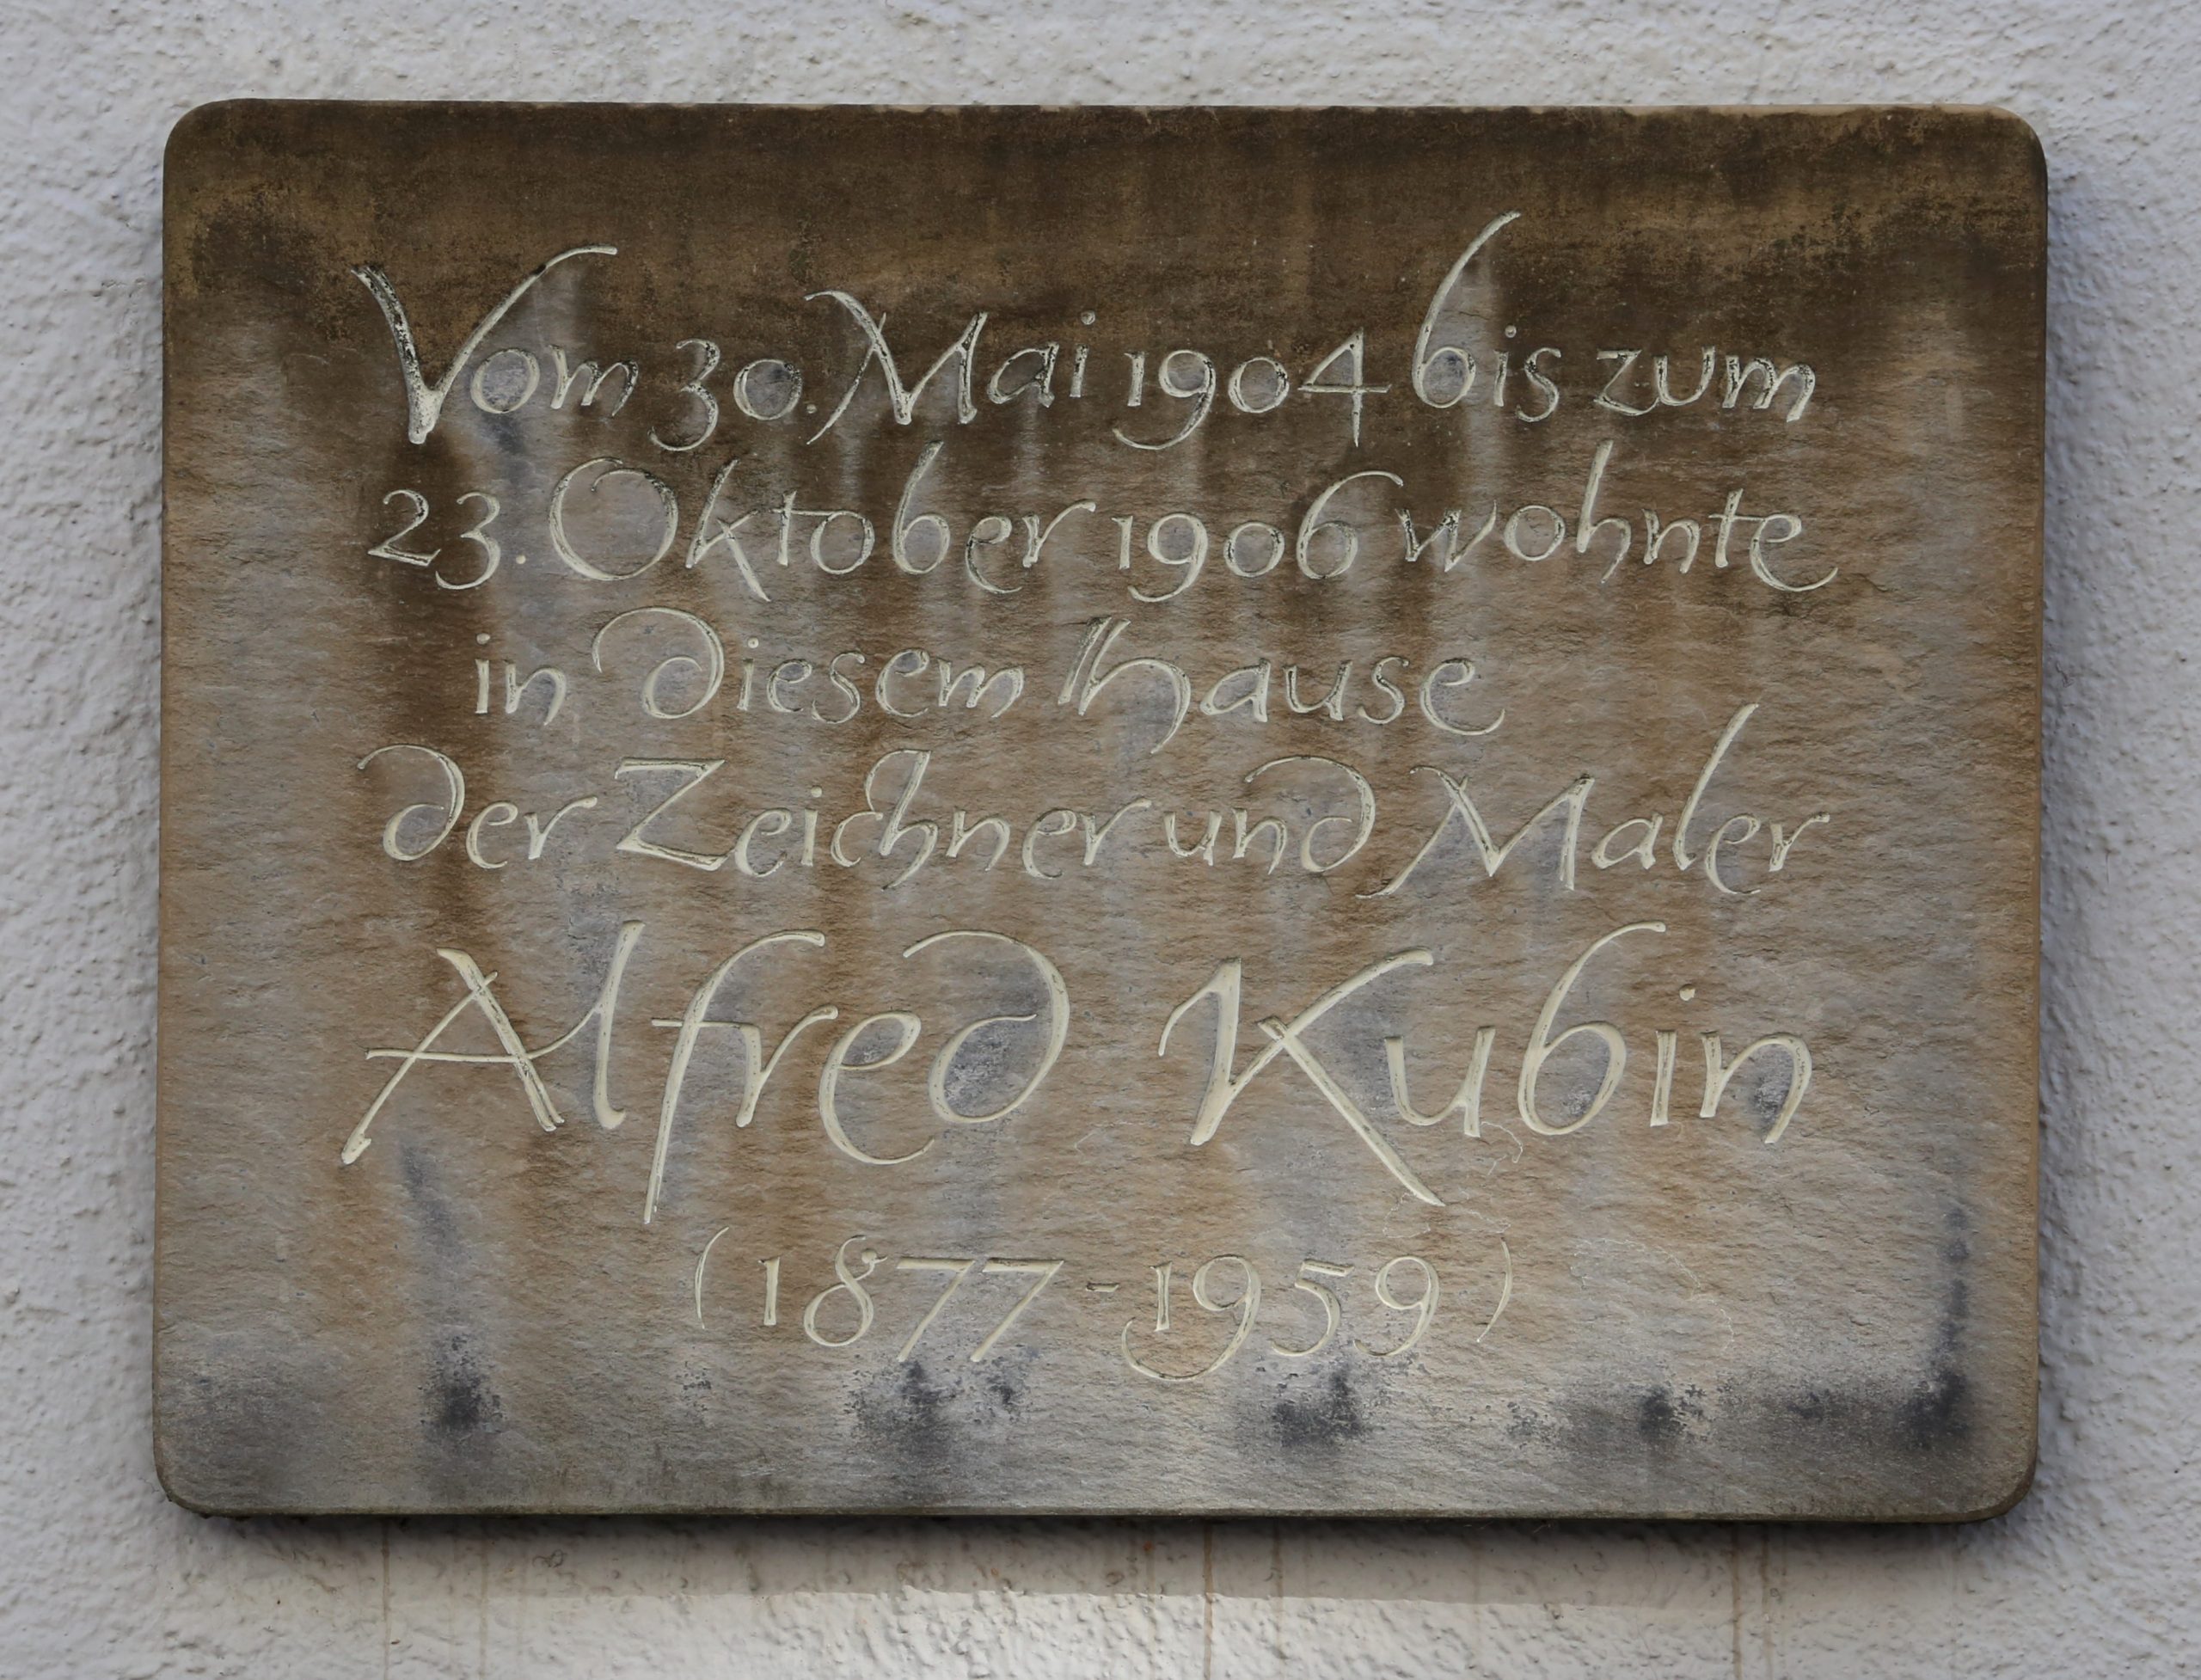 Vom 30. Mai 1904 bis zum
23. Oktober 1906 wohnte
in diesem Hause
der Zeichner und Maler
Alfred Kubin
(1877-1959)